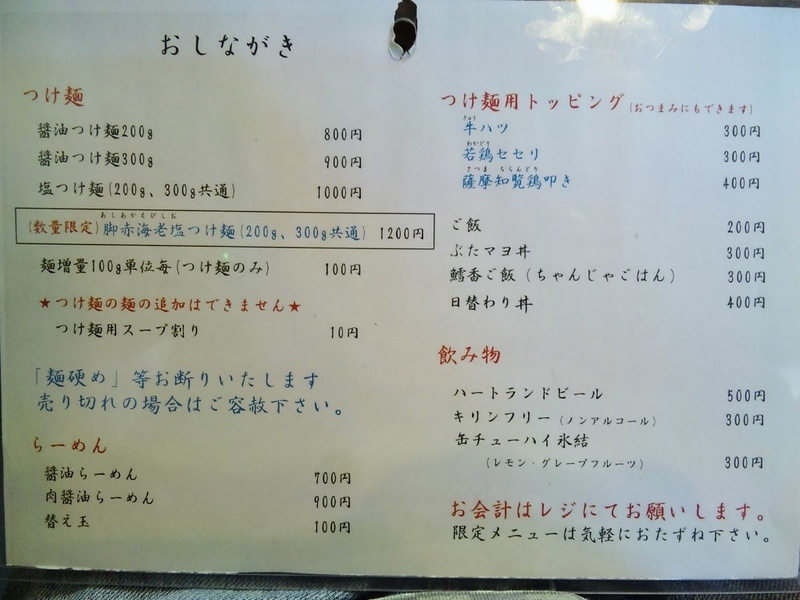 おしながき
つけ麺
醤油つけ麺200g 800円
醤油つけ麺300g 900円
塩つけ麺(200g、300g共通) 1000円
あしあかえびしお
(数量限定)脚赤海老塩つけ麺(200g、300g共通) 1200円
麺増量100g単位毎(つけ麺のみ) 100円
★つけ麺の麺の追加はできません★
つけ麺用スープ割り 10円
「麺硬め」等お断りいたします
売り切れの場合はご容赦下さい。
らーめん
醤油らーめん 700円
肉醤油らーめん 900円
替え玉 100円
つけ麺用トッピング(おつまみにもできます)
ぎゅう
牛ハツ 300円
わかどり
若鶏セセリ 300円
さつま ちらんどり
薩摩知覧鶏叩き 400円
ご飯 200円
ぶたマヨ丼 300円
鱈香ご飯(ちゃんじゃごはん) 300円
日替わり丼 400円
飲み物
ハートランドビール 500円
キリンフリー(ノンアルコール) 300円
缶チューハイ氷結
(レモン・グレープフルーツ) 300円
お会計はレジにてお願いします。
限定メニューは気軽におたずね下さい。